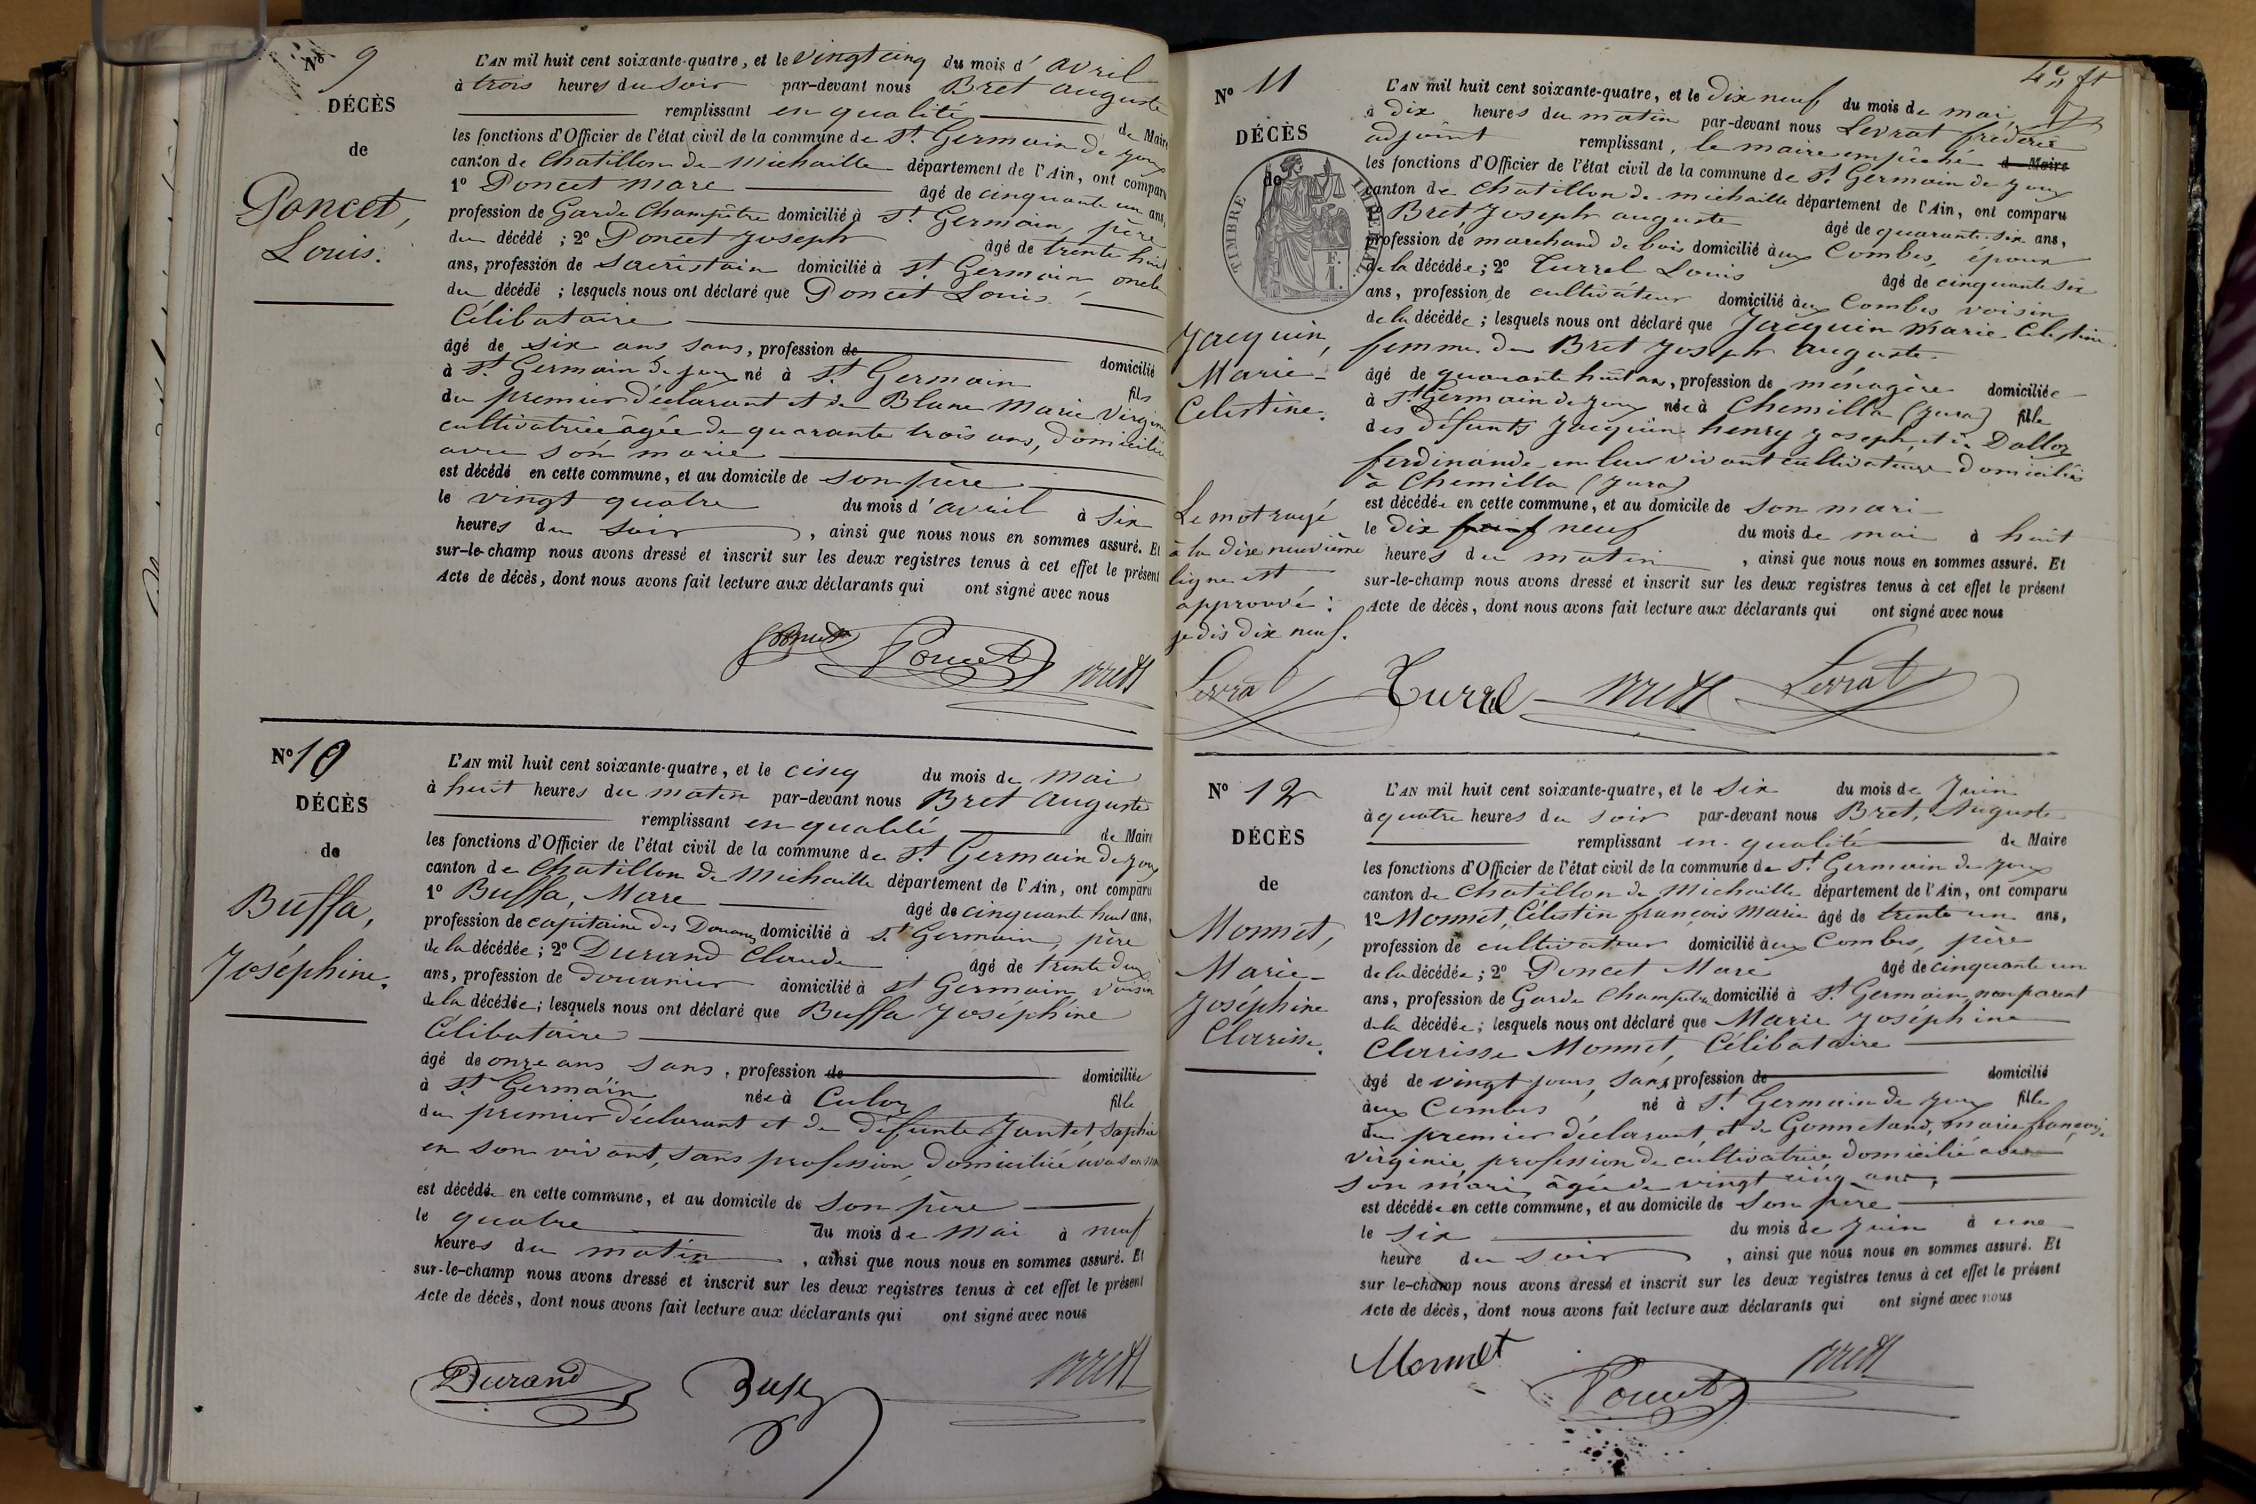 N° 9
DÉCÈS
de
Poncet,
Louis.
L'AN mil huit cent soixante-quatre, et le vingt cinq du mois d'avril
à trois heures du soir par-devant nous Bret Auguste
remplissant en qualité de Maire
les fonctions d'Officier de l'état civil de la commune de St. Germain de Joux
canton de Chatillon de Michaille département de l'Ain, ont comparu
1° Poncet Marc âgé de cinquante un ans,
profession de Garde Champêtre domicilié à St. Germain, père
du décédé ; 2° Poncet Joseph âgé de trente huit
ans, profession de Sacristain domicilié à St. Germain oncle
du décédé ; lesquels nous ont déclaré que Poncet Louis
Célibataire
âgé de six ans sans, profession de domicilié
à St. Germain de Joux né à St. Germain fils
du premier déclarant et de Blanc Marie Virginie
cultivatrice âgée de quarante trois ans, domiciliée
avec son marie
est décédé en cette commune, et au domicile de son père
le vingt quatre du mois d'avril à six
heures du soir, ainsi que nous nous en sommes assuré. Et
sur-le-champ nous avons dressé et inscrit sur les deux registres tenus à cet effet le présent
Acte de décès, dont nous avons fait lecture aux déclarants qui ont signé avec nous
Poncet Bret
N° 10
DÉCÈS
de
Buffa,
Joséphine.
L'AN mil huit cent soixante-quatre, et le cinq du mois de mai
à huit heures du matin par-devant nous Bret Auguste
remplissant en qualité de Maire
les fonctions d'Officier de l'état civil de la commune de St. Germain de Joux
canton de Chatillon de Michaille département de l'Ain, ont comparu
1° Buffa, Marc âgé de cinquante huit ans,
profession de capitaine des Douanes domicilié à St. Germain, père
de la décédée ; 2° Durand Claude âgé de trente deux
ans, profession de douanier domicilié à St Germain voisin
de la décédée ; lesquels nous ont déclaré que Buffa Joséphine
Célibataire
âgé de onze ans sans, profession de domiciliée
à St. Germain née à Culoz fille
du premier déclarant et de défunte Jantet, Sophie
en son vivant, sans profession domiciliée
est décédée en cette commune, et au domicile de son père
le quatre du mois de Mai à neuf
heures du matin, ainsi que nous nous en sommes assuré. Et
sur-le-champ nous avons dressé et inscrit sur les deux registres tenus à cet effet le présent
Acte de décès, dont nous avons fait lecture aux déclarants qui ont signé avec nous
Durand Bret
N° 11
DÉCÈS
de
TIMBRE IMPÉRIAL
Jacquin,
Marie-
Celestine.
L'AN mil huit cent soixante-quatre, et le dix neuf du mois de mai
à dix heures du matin par-devant nous Levrat fréderic
adjoint remplissant, le maire empêché de Maire
les fonctions d'Officier de l'état civil de la commune de St. Germain de Joux
canton de Chatillon de Michaille département de l'Ain, ont comparu
1° Bret Joseph auguste âgé de quarante six ans,
profession de marchand de bois domicilié aux Combes, époux
de la décédée ; 2° Turrel Louis âgé de cinquante six
ans, profession de cultivateur domicilié aux Combes voisin
de la décédée ; lesquels nous ont déclaré que Jacquin Marie Celestine
femme de Bret Joseph Auguste.
âgé de quarante huit ans, profession de ménagère domiciliée
à St. Germain de Joux née à Chemilla (Jura) fille
des défunts Jacquin henry Joseph, et de Dalloz
ferdinande en leur vivant cultivateurs domiciliés
à Chemilla (Jura)
est décédée en cette commune, et au domicile de son mari
le dix neuf du mois de mai à huit
heures du matin, ainsi que nous nous en sommes assuré. Et
sur-le-champ nous avons dressé et inscrit sur les deux registres tenus à cet effet le présent
Acte de décès, dont nous avons fait lecture aux déclarants qui ont signé avec nous
Le mot rayé
à la dixe neuvième
ligne est
approuvé :
je dis dix neuf.
Levrat Turrel Bret Levrat
N° 12
DÉCÈS
de
Monnet,
Marie-
Joséphine
Clarisse.
L'AN mil huit cent soixante-quatre, et le six du mois de Juin
à quatre heures du soir par-devant nous Bret, Auguste
remplissant en qualité de Maire
les fonctions d'Officier de l'état civil de la commune de St. Germain de Joux
canton de Chatillon de Michaille département de l'Ain, ont comparu
1° Monnet, Célestin françois Marie âgé de trente un ans,
profession de cultivateur domicilié aux Combes, père
de la décédée ; 2° Poncet Marc âgé de cinquante un
ans, profession de Garde Champêtre domicilié à St. Germain non parent
de la décédée ; lesquels nous ont déclaré que Marie Joséphine
Clarisse Monnet, Célibataire
âgé de vingt jours, sans profession de domicilié
aux Combes né à St. Germain de Joux fille
du premier déclarant, et de Gonnetand, marie françoise
virginie, profession de cultivatrice domicilié avec
son mari, âgée de vingt cinq ans,
est décédée en cette commune, et au domicile de son père
le six du mois de Juin à une
heure du soir, ainsi que nous nous en sommes assuré. Et
sur le-champ nous avons dressé et inscrit sur les deux registres tenus à cet effet le présent
Acte de décès, dont nous avons fait lecture aux déclarants qui ont signé avec nous
Monnet Poncet Bret